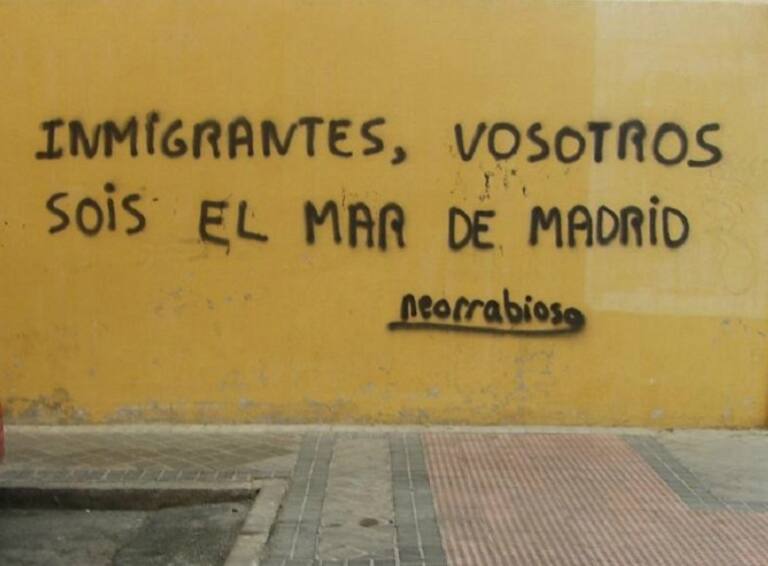 INMIGRANTES, VOSOTROS
SOIS EL MAR DE MADRID
neorrabioso